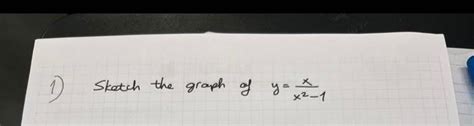 1) Sketch the graph of y = x/(x²-1)